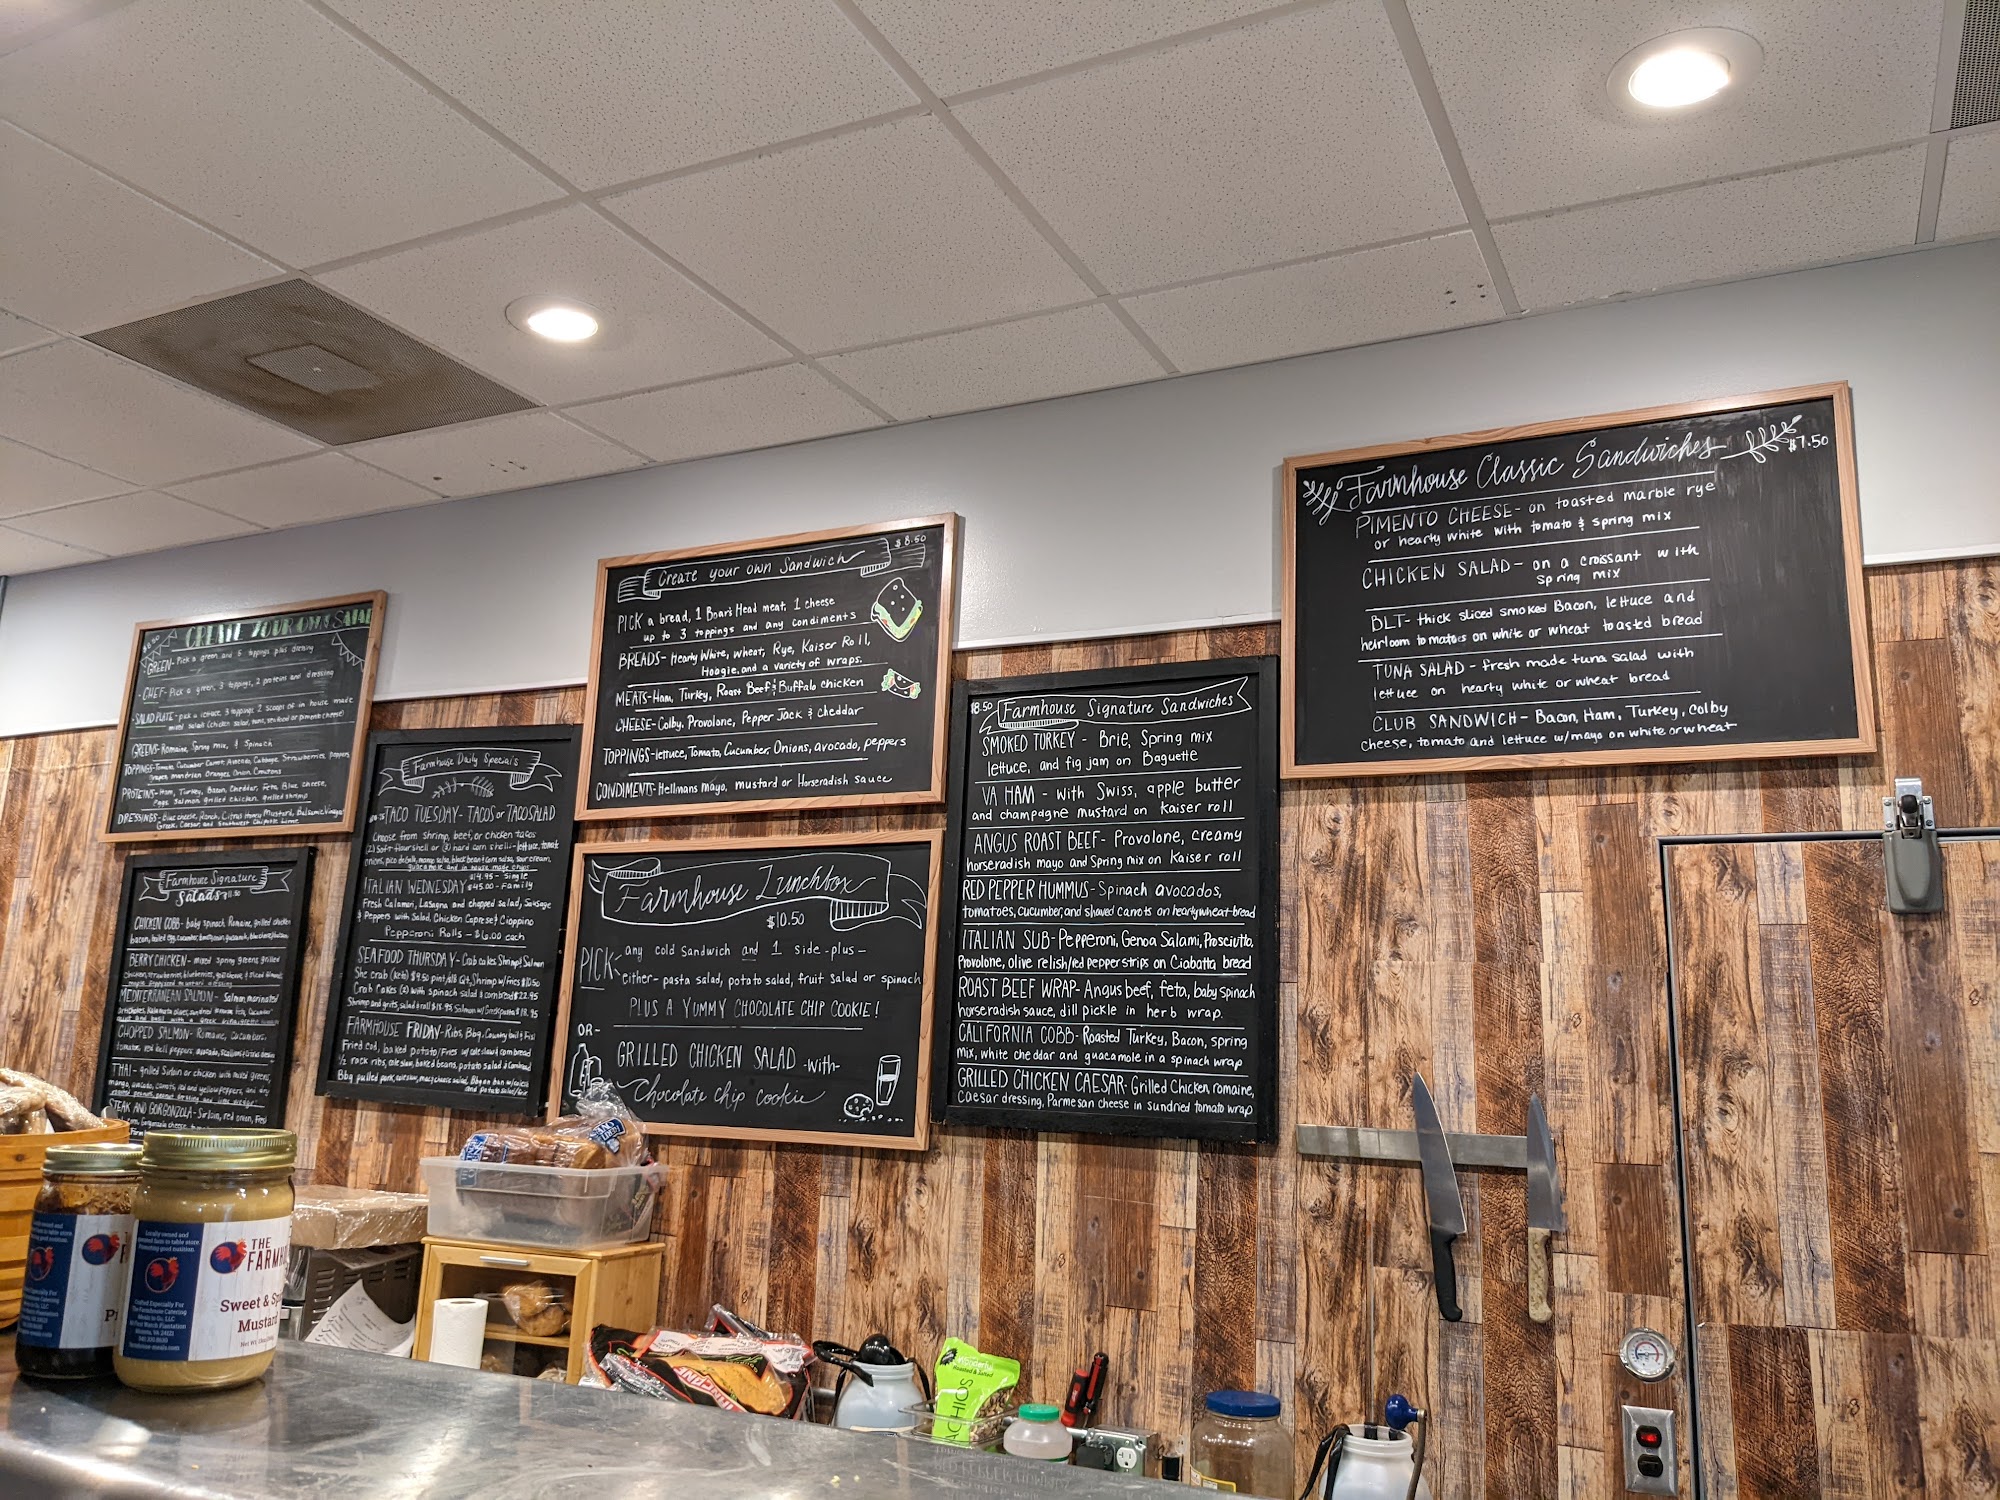 CREATE YOUR OWN SALAD
GREEN- Pick a green and 5 toppings plus dressing
CHEF- Pick a green, 3 toppings, 2 proteins and dressing
SALAD PLATE- pick a lettuce 3 toppings 2 scoops of in house made
GREENS- Romaine, Spring mix, & Spinach
PROTEINS- Ham, Turkey, Bacon, Cheddar, Feta, Blue cheese,
eggs, Salmon, grilled chicken, grilled shrimp
Farmhouse Signature
Salads
CHICKEN COBB- baby spinach Romaine, grilled chicken
BERRY CHICKEN- mixed spring greens, grilled
MEDITERRANEAN SALMON- Salmon, marinated
CHOPPED SALMON- Romaine, cucumbers,
THAI- grilled Sirloin or chicken with mixed greens,
STEAK AND GORGONZOLA- Sirloin, red onion, Fresh
Farmhouse Daily Specials
TACO TUESDAY- TACOS or TACO SALAD
Choose from Shrimp, beef, or chicken tacos
(2) Soft flour shell or (3) hard corn shell- lettuce, tomato
onions, pico de gallo, mango salsa, black bean & corn salsa, sour cream,
guacamole and in house made chips
ITALIAN WEDNESDAY $14.95- Single
$45.00- Family
Fresh Calamari, Lasagna and chopped salad, Sausage
& Peppers with Salad, Chicken Caprese & Cioppino
Pepperoni Rolls - $6.00 each
SEAFOOD THURSDAY- Crab cakes, Shrimp & Salmon
Crab Cakes (2) with spinach salad & cornbread $22.95
FARMHOUSE FRIDAY- Ribs, Bbq,
Fried cod, baked potato/Fries w/ cole slaw & cornbread
1/2 rack ribs, cole slaw, baked beans, potato salad & cornbread
Create your own Sandwich $8.50
PICK a bread, 1 Boar's Head meat, 1 cheese
up to 3 toppings and any condiments
BREADS- Hearty White, wheat, Rye, Kaiser Roll,
Hoagie, and a variety of wraps.
MEATS- Ham, Turkey, Roast Beef & Buffalo chicken
CHEESE- Colby, Provolone, Pepper Jack & cheddar
TOPPINGS- lettuce, Tomato, Cucumber, Onions, avocado, peppers
CONDIMENTS- Hellmans mayo, mustard or Horseradish sauce
Farmhouse Lunchbox
$10.50
PICK any cold sandwich and 1 side -plus-
either- pasta salad, potato salad, fruit salad or spinach
PLUS A YUMMY CHOCOLATE CHIP COOKIE!
OR-
GRILLED CHICKEN SALAD -with-
Chocolate chip cookie
$8.50 Farmhouse Signature Sandwiches
SMOKED TURKEY - Brie, Spring mix
lettuce, and fig jam on Baguette
VA HAM - with Swiss, apple butter
and champagne mustard on Kaiser roll
ANGUS ROAST BEEF- Provolone, creamy
horseradish mayo and Spring mix on Kaiser roll
RED PEPPER HUMMUS- Spinach avocados,
tomatoes, cucumber, and shaved carrots on hearty wheat bread
ITALIAN SUB- Pepperoni, Genoa Salami, Prosciutto,
Provolone, olive relish/red pepper strips on Ciabatta bread
ROAST BEEF WRAP- Angus beef, feta, baby spinach
horseradish sauce, dill pickle in herb wrap.
CALIFORNIA COBB- Roasted Turkey, Bacon, spring
mix, white cheddar and guacamole in a spinach wrap
GRILLED CHICKEN CAESAR- Grilled Chicken, romaine,
Caesar dressing, Parmesan cheese in sundried tomato wrap
Farmhouse Classic Sandwiches $7.50
PIMENTO CHEESE- on toasted marble rye
or hearty white with tomato & spring mix
CHICKEN SALAD- on a croissant with
spring mix
BLT- thick sliced smoked Bacon, lettuce and
heirloom tomatoes on white or wheat toasted bread
TUNA SALAD - fresh made tuna salad with
lettuce on hearty white or wheat bread
CLUB SANDWICH- Bacon, Ham, Turkey, Colby
cheese, tomato and lettuce w/mayo on white or wheat
THE
FARMH
Sweet & Sp
Mustard
Wonderful
Roasted & Salted